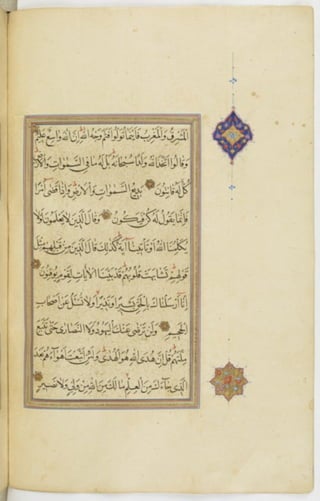 المشرق والمغرب فاينما تولوا فثم وجه الله ان الله واسع عليم
وقالوا اتخذ الله ولدا سبحانه بل له ما في السموات والارض
كل له قانتون بديع السموات والارض واذا قضى امرا
فانما يقول له كن فيكون وقال الذين لا يعلمون لولا
يكلمنا الله او تأتينا آية كذلك قال الذين من قبلهم مثل
قولهم تشابهت قلوبهم قد بينا الايات لقوم يوقنون
انا ارسلناك بالحق بشيرا ونذيرا ولا تسئل عن اصحاب
الجحيم ولن ترضى عنك اليهود ولا النصارى حتى تتبع
ملتهم قل ان هدى الله هو الهدى ولئن اتبعت اهواءهم بعد
الذي جاءك من العلم ما لك من الله من ولي ولا نصير